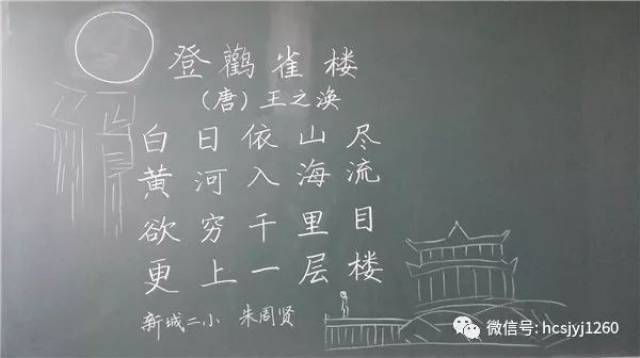 登鸛雀楼
（唐）王之涣
白日依山尽
黄河入海流
欲穷千里目
更上一层楼
新城二小 朱周贤
微信号: hcsjyj1260